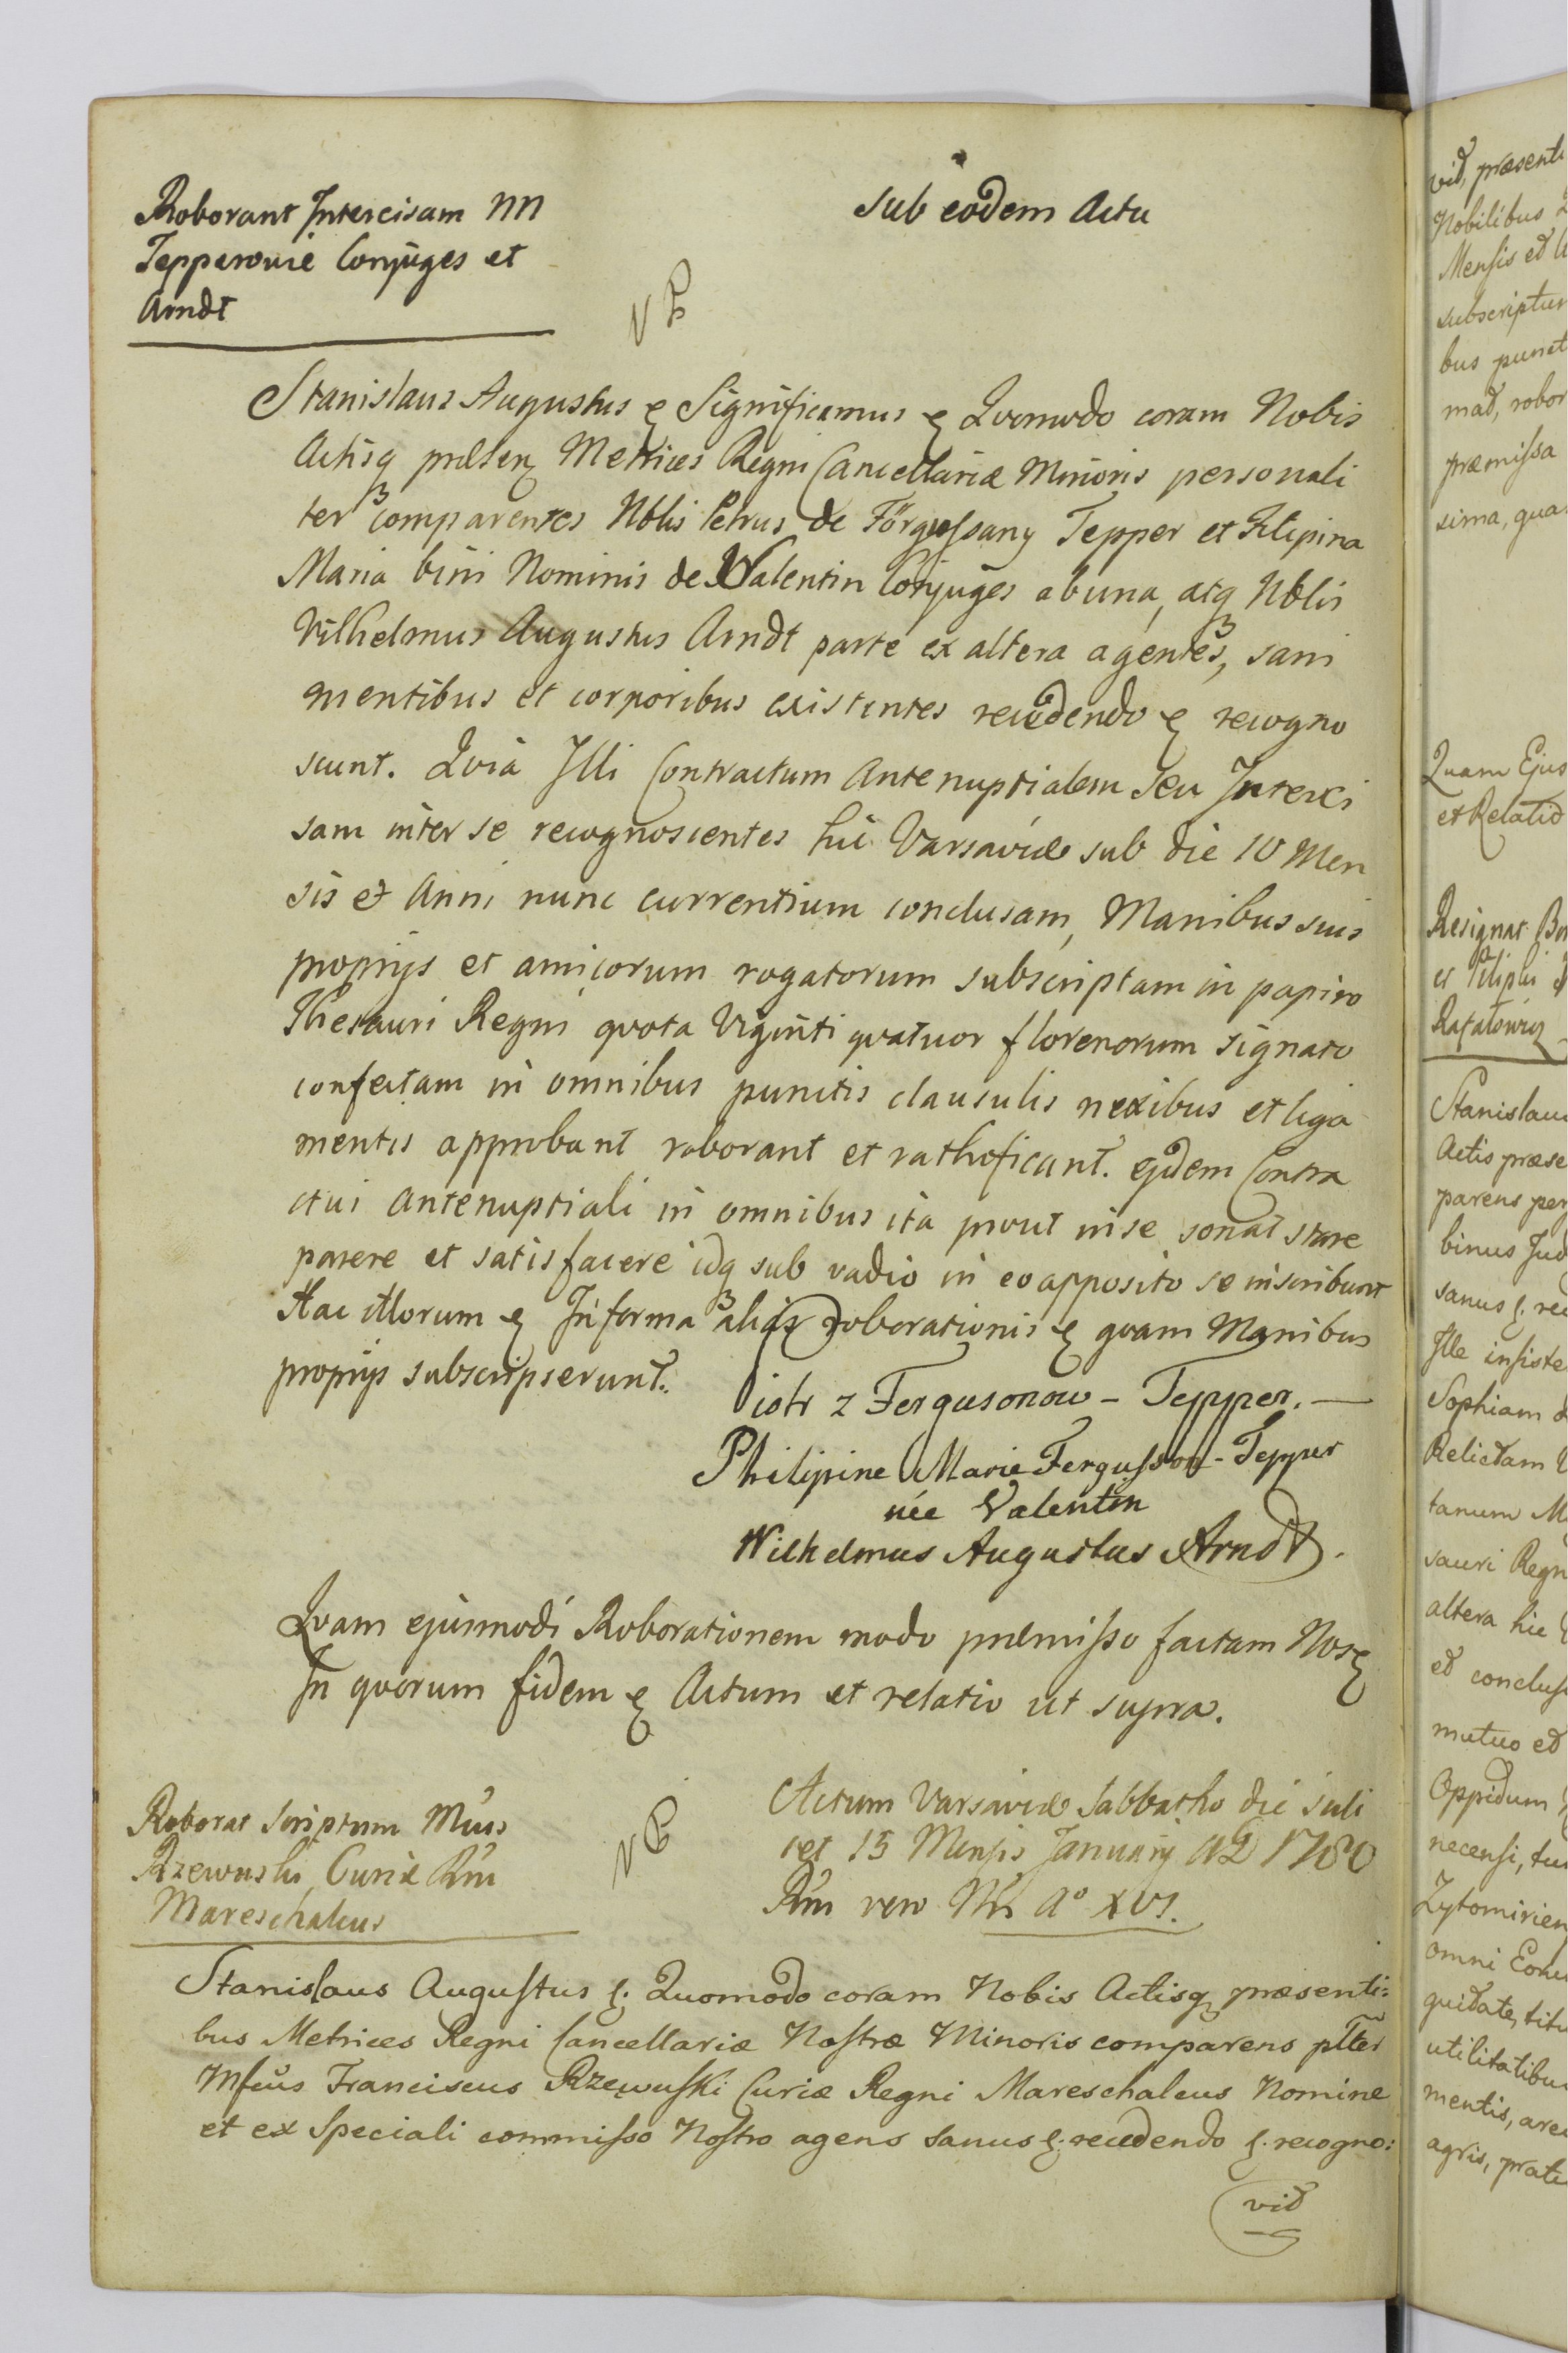 Roborant Intercisam NN
Tepperowie Conjuges et
Arndt
Sub eodem Actu
NB
Stanislaus Augustus ę Significamus ę Quomodo coram Nobis
Actisq præsenz Metrices Regni Cancellariæ Minoris personali
ter comparentes Nblis Petrus de Förguſsany Tepper et Filipina
Maria bini Nominis de Valentin Conjuges ab una, atq Nblis
Vilhelmus Augustus Arndt parte ex altera agentes, sani
mentibus et corporibus existentes recedendo ę recogno
scunt. Quia Illi Contractum Antenuptialem seu Interci
sam inter se recognoscentes hic Varsaviæ sub die 10 Men
sis et Anni nunc currentium conclusam, Manibus suis
proprijs et amicorum rogatorum subscriptam in papiro
Thesauri Regni quota Viginti quatuor florenorum signato
confectam in omnibus punctis clausulis nexibus et liga
mentis approbant roborant et rathificant. ejdem Contra
ctui Antenuptiali in omnibus ita prout in se sonat stare
parere et satisfacere idq sub vadio in eo apposito se inscribunt
Hac illorum ę In forma alias roborationis ę quam Manibus
proprijs subscripserunt.
Piotr z Fergusonow - Tepper.
Philipine Marie Ferguſson - Tepper
née Valentin
Wilhelmus Augustus Arndt.
Quam ejusmodi Roborationem modo præmiſso factam Nos ę
In quorum fidem ę Actum et relatio ut supra.
Roborat Scriptum Mcus
Rzewuski Curiæ Rni
Mareschalcus
NB
Actum Varsaviæ Sabbatho die scili
cet 15 Mensis Januarij AD 1780
Rni vero Nri Aº XVI.
Stanislaus Auguſtus ę. Quomodo coram Nobis Actisq præsenti:
bus Metrices Regni Cancellariæ Noſtræ Minoris comparens plter
Mfcus Franciscus Rzewuſki Curiæ Regni Mareschalcus Nomine
et ex Speciali commiſso Noſtro agens Sanus ę. recedendo ę. recogno:
vit
vit, præsenti
Nobilibus
Menſis et
subscriptum
bus punct
mat, robor
præmiſsa
sima, quar
Quam Ejus
et Relatio
Resignat
et
Rafalowicz
Stanislaus
Actis præse
parens per
binus Jud
sanus ę. rec
Ille inſiste
Sophiam
Relictam
tanum
sauri Regn
altera hic
et concluſ
mutuo et
Oppidum
necenſi,
Zytomirien
omni
quitate, titu
utilitatibus
mentis, are
agris, prati